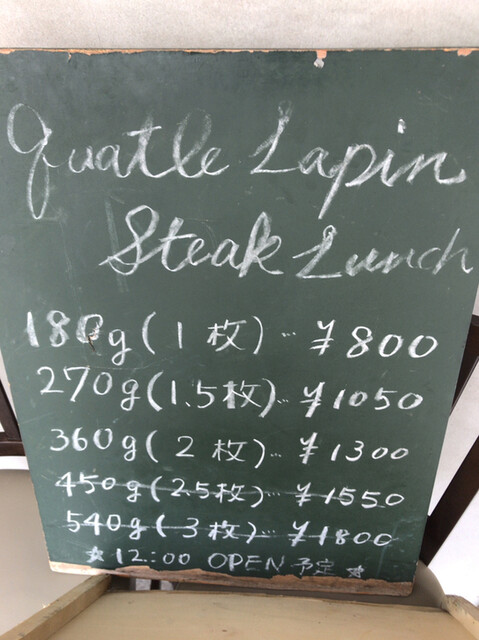 Quatle Lapin
Steak Lunch
180g(1枚)…¥800
270g(1.5枚)…¥1050
360g(2枚)…¥1300
450g(2.5枚)…¥1550
540g(3枚)…¥1800
★12:00 OPEN予定★